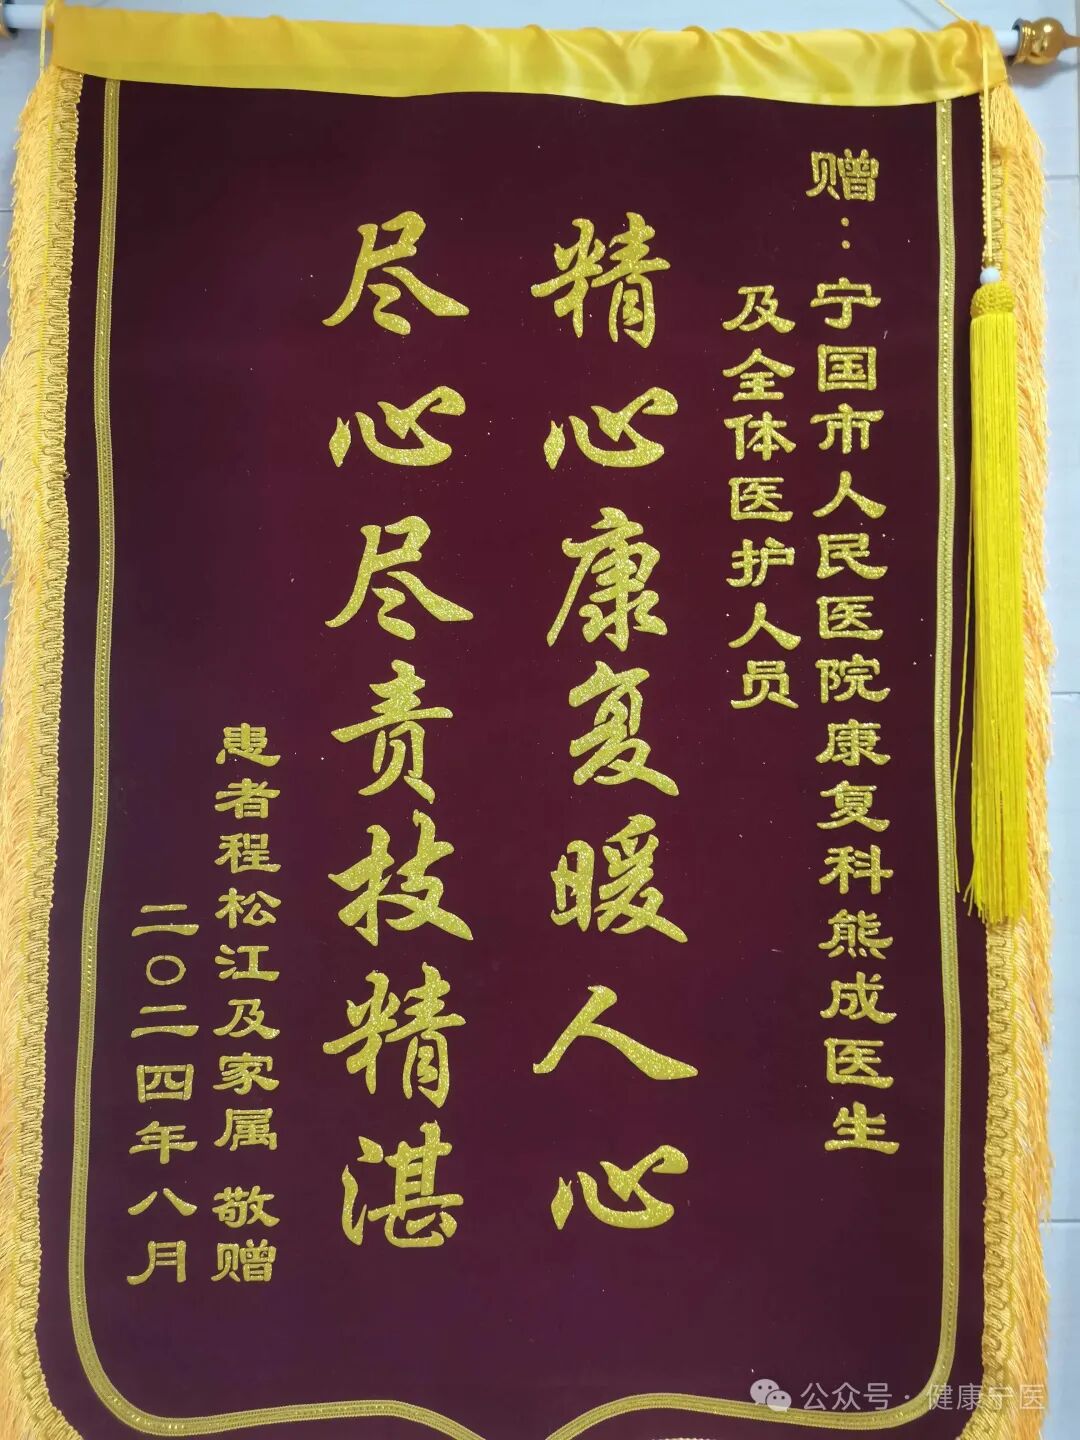 赠：宁国市人民医院康复科熊成医生
及全体医护人员
精心康复暖人心
尽心尽责技精湛
患者程松江及家属 敬赠
二〇二四年八月
公众号·健康宁医